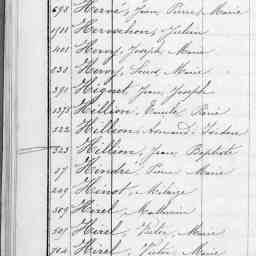 698 Hervé, Jean Pierre Marie
1911 Hervochon, Julien
1401 Hervy, Joseph Marie
1031 Hervy, Louis, Marie
391 Hignet, Jean, Joseph
1375 Hillion, Emile René
522 Hillion, Armand Isidore
323 Hillion, Jean Baptiste
07 Hindré, Pierre Marie
209 Hinot, Melaine
509 Hirel, Mathurin
501 Hirel, Victor, Marie
704 Hirel, Victor Marie